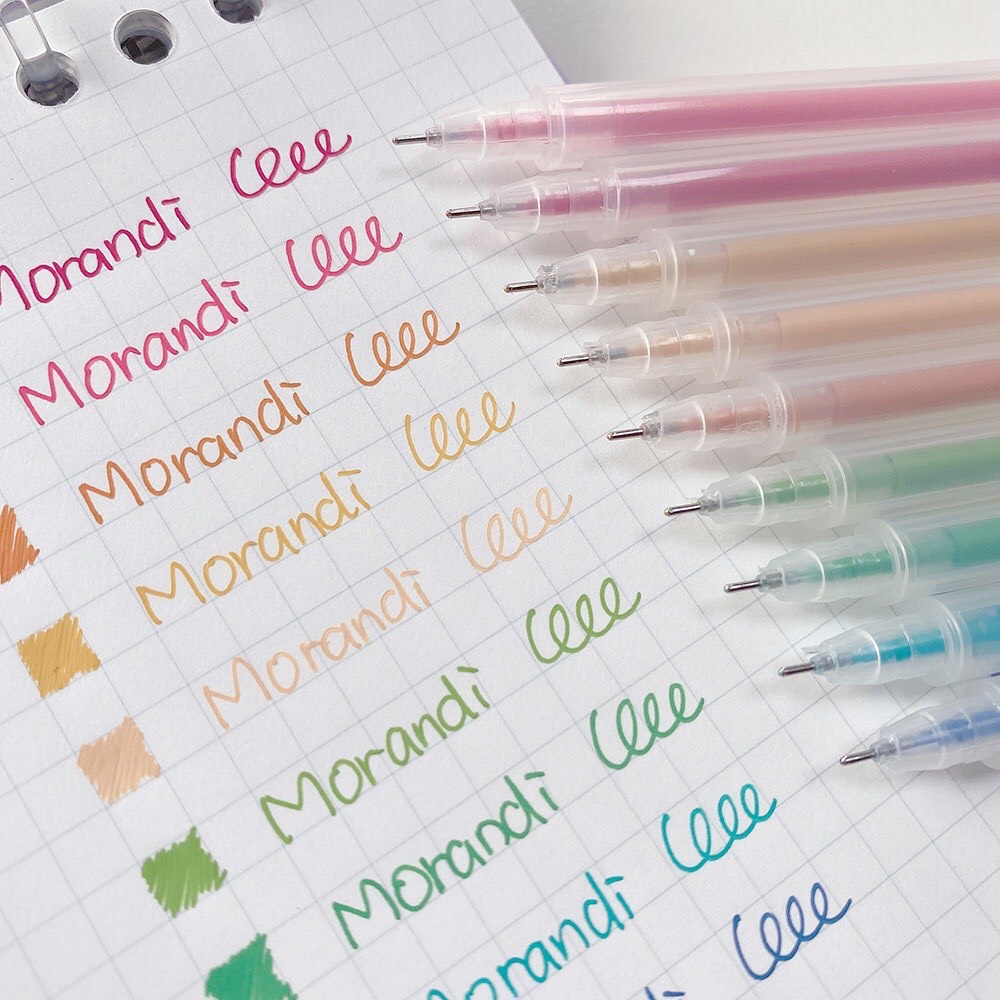 Morandi
Morandi
Morandi
Morandi
Morandi
Morandi
Morandi
orandi